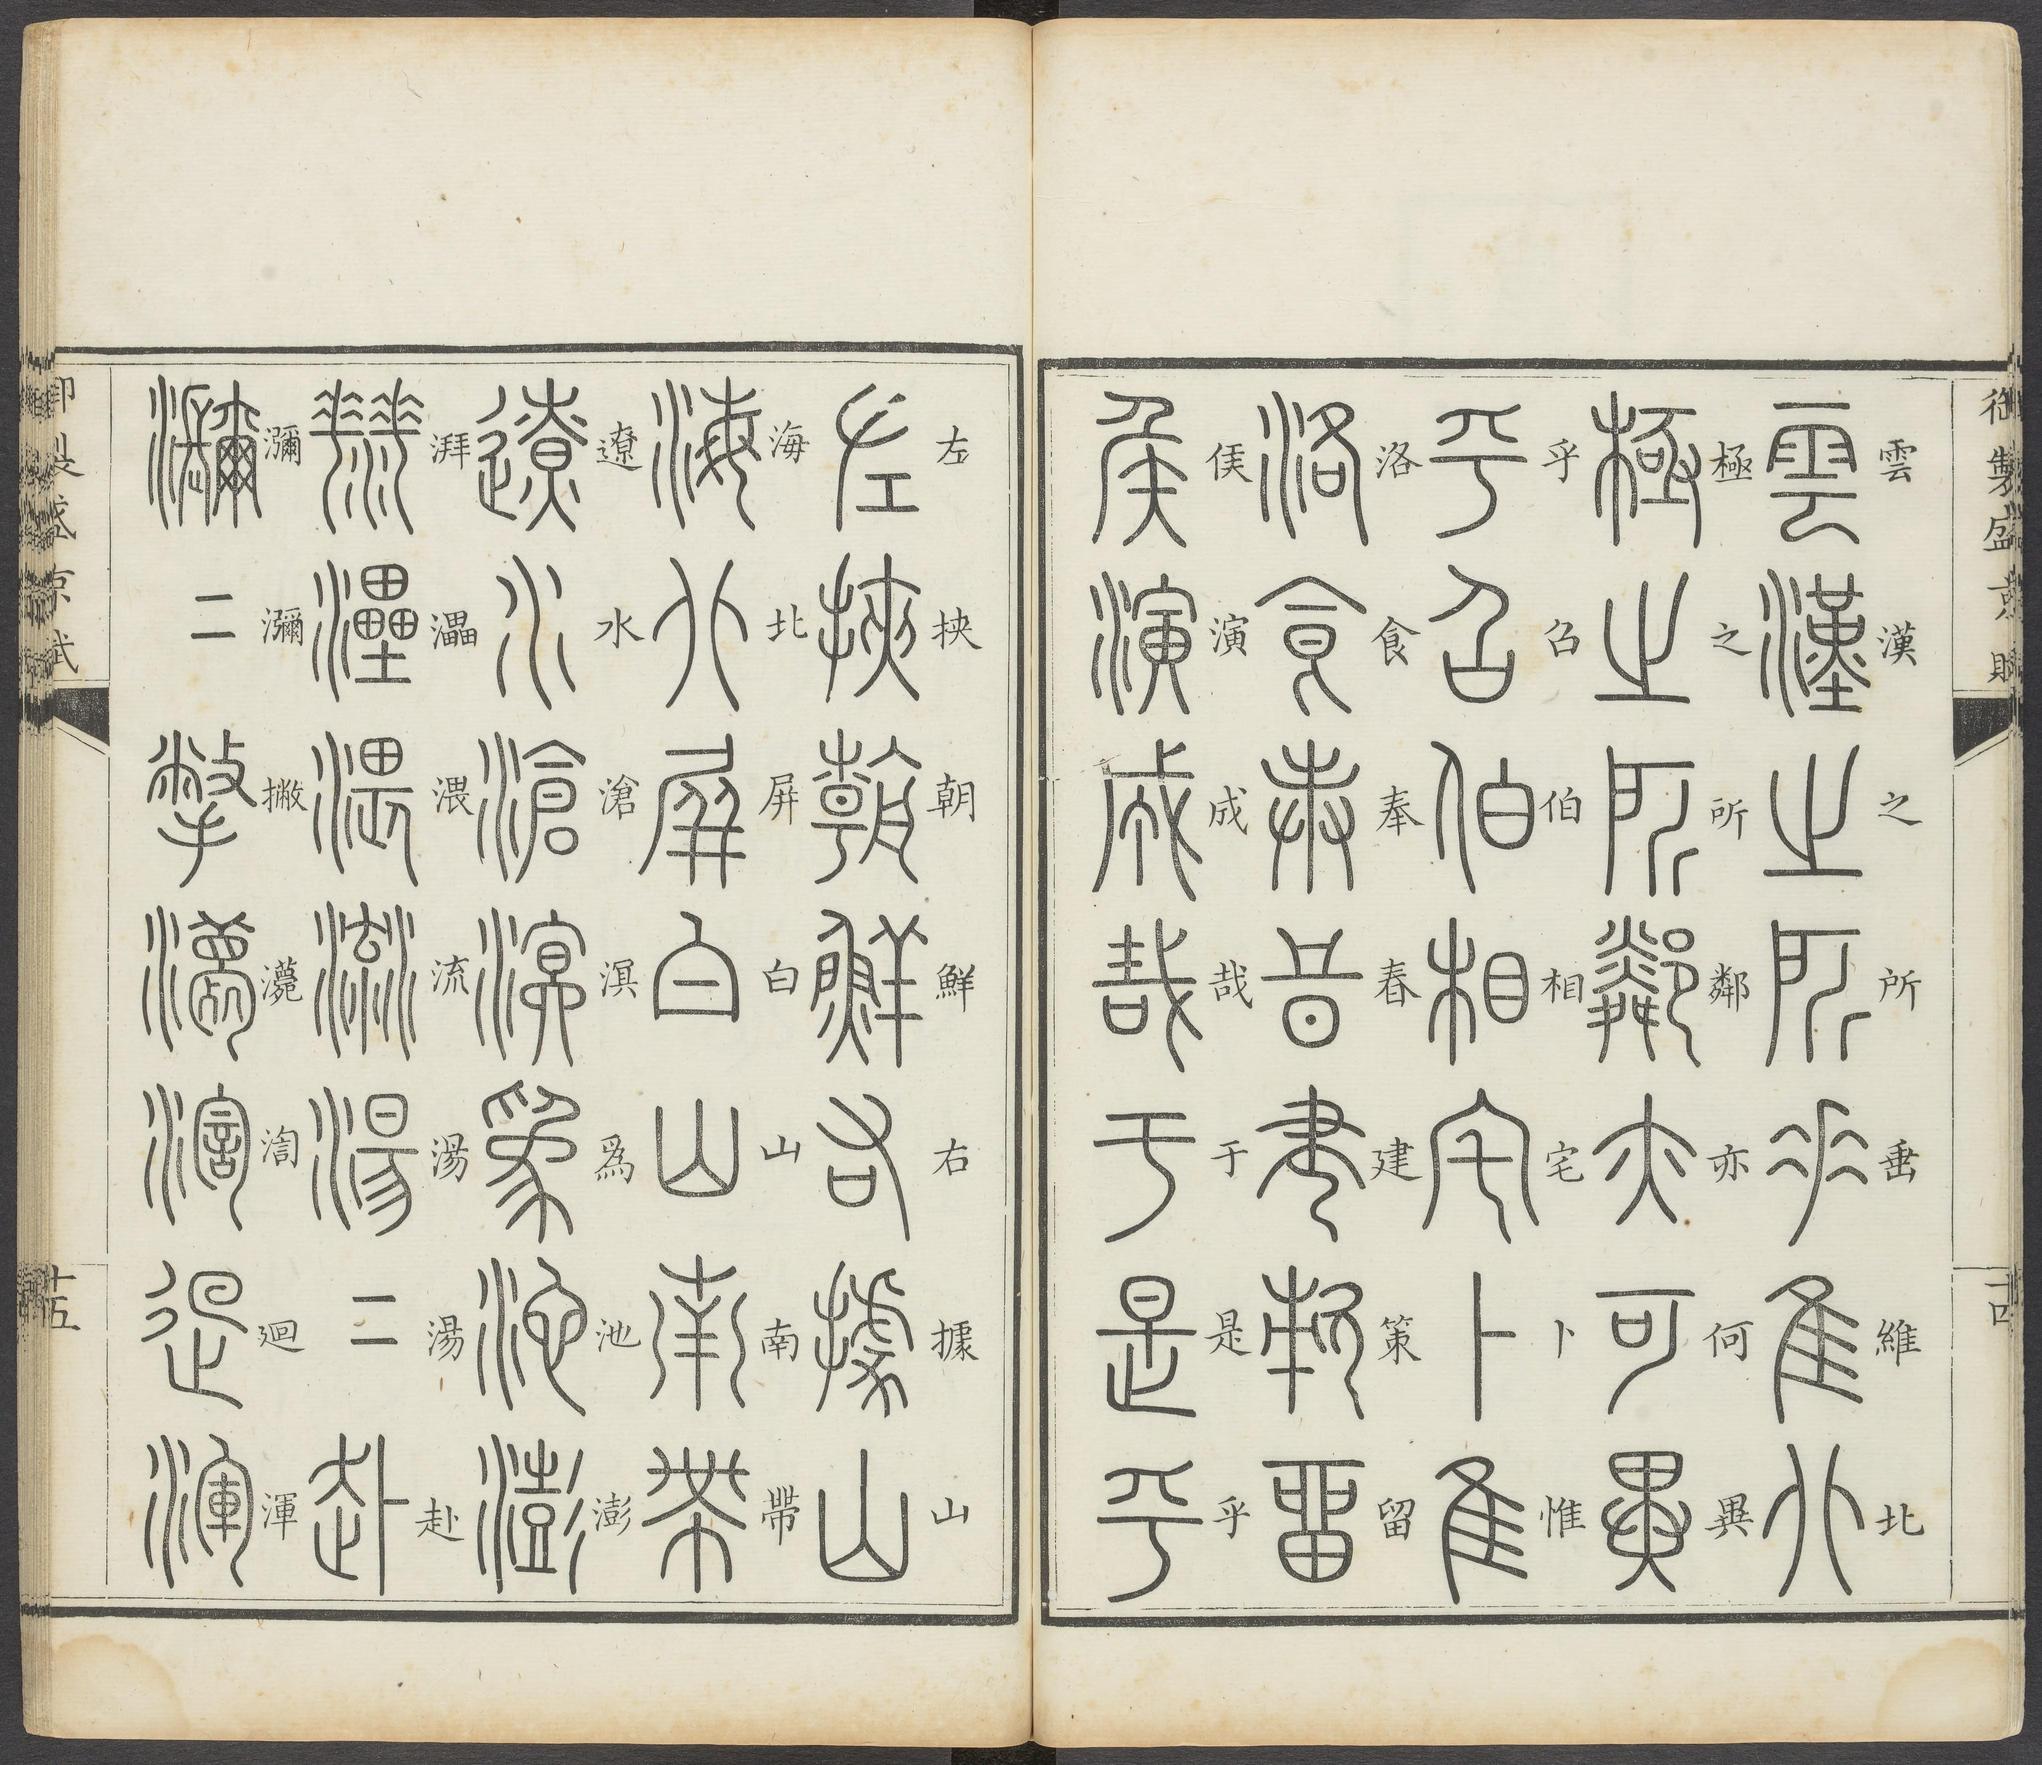 御製盛京賦
十四
雲漢之所垂維北
極之所鄰亦何異
乎召伯相宅卜惟
洛食奉春建策留
侯演成哉于是乎
左挾朝鮮右據山
海北屏白山南帶
遼水滄溟爲池澎
湃灅渨流湯湯赴
瀰瀰撇渹廻渾
御製盛京賦
十五